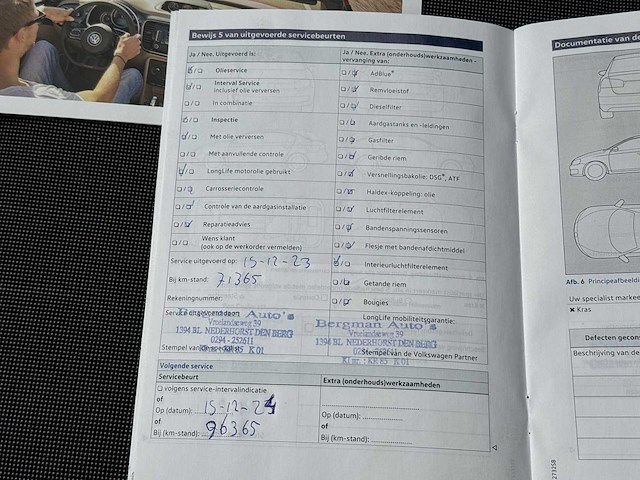 Bewijs 5 van uitgevoerde servicebeurten
Ja / Nee. Uitgevoerd is:
Olieservice
Interval Service
inclusief olie verversen
In combinatie
Inspectie
Met olie verversen
Met aanvullende controle
LongLife motorolie gebruikt
Carrosseriecontrole
Controle van de aardgasinstallatie
Reparatieadvies
Wens klant
(ook op de werkorder vermelden)
Service uitgevoerd op: 15-12-23
Bij km-stand: 71365
Rekeningnummer:
Service uitgevoerd door:
Auto's
Vreelandseweg 39
1394 BL NEDERHORST DEN BERG
0294 - 252611
KR 85 K 01
Ja / Nee. Extra (onderhouds)werkzaamheden -
vervanging van:
AdBlue®
Remvloeistof
Dieselfilter
Aardgastanks en -leidingen
Gasfilter
Geribde riem
Versnellingsbakolie: DSG®, ATF
Haldex-koppeling: olie
Luchtfilterelement
Bandenspanningssensoren
Flesje met bandenafdichtmiddel
Interieurluchtfilterelement
Getande riem
Bougies
LongLife mobiliteitsgarantie:
Bergman Auto's
Vreelandseweg 39
1394 BL NEDERHORST DEN BERG
KR 85 K 01
Stempel van de Volkswagen Partner
Volgende service
Servicebeurt
volgens service-intervalindicatie
of
Op (datum): 15-12-24
of
Bij (km-stand): 96365
Extra (onderhouds)werkzaamheden
of
Op (datum):
of
Bij (km-stand):
Documentatie van de
Afb. 6 Principeafbeeldi
Uw specialist markee
✖ Kras
Defecten gecons
Beschrijving van de